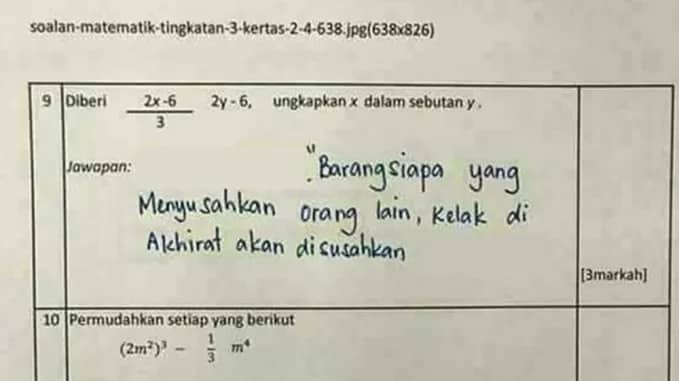 soalan-matematik-tingkatan-3-kertas-2-4-638.jpg(638x826)
9 Diberi (2x-6)/3 2y - 6, ungkapkan x dalam sebutan y.
Jawapan:
"Barangsiapa yang
Menyusahkan orang lain, Kelak di
Akhirat akan disusahkan
[3markah]
10 Permudahkan setiap yang berikut
(2m²)³ − 1/3 m⁴